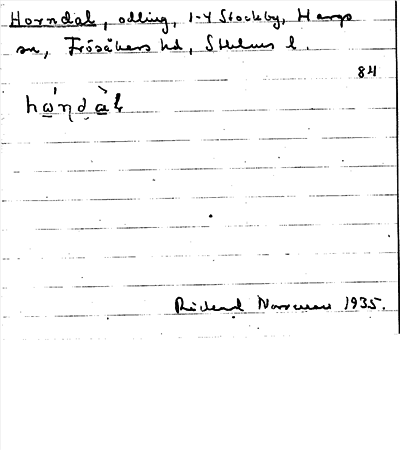 Horndal, odling, 1-4 Stockby, Hargs
sn, Frösåkers hd, Sthlms l.
84
hώηdàł
Rickard Norrman 1935.